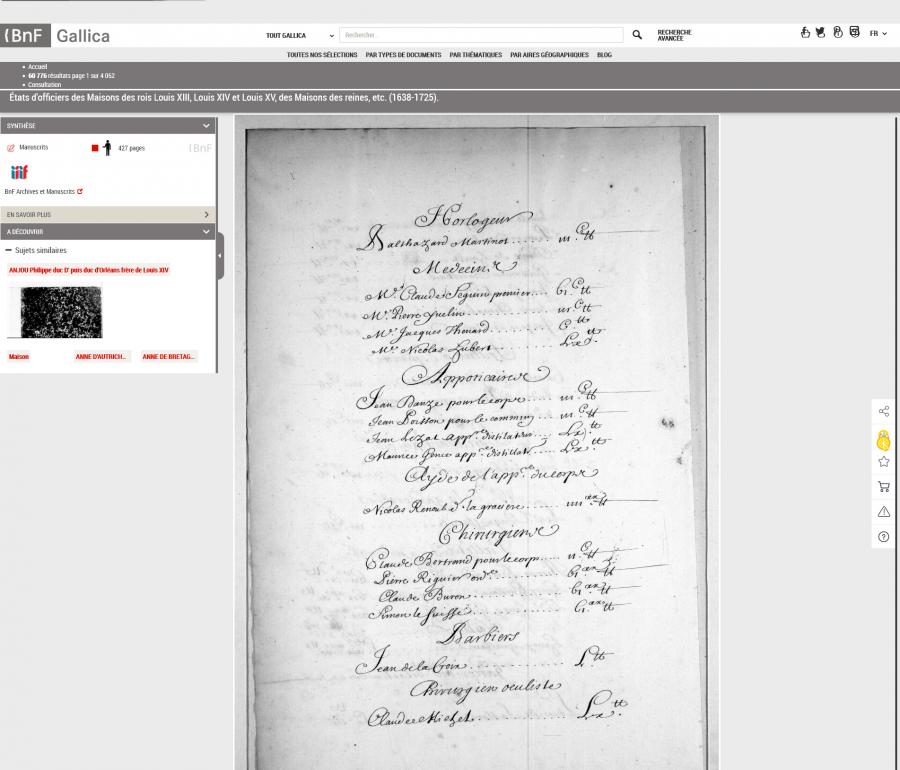 {BnF Gallica
TOUT GALLICA
Rechercher...
RECHERCHE AVANCÉE
FR
TOUTES NOS SÉLECTIONS PAR TYPES DE DOCUMENTS PAR THÉMATIQUES PAR AIRES GÉOGRAPHIQUES BLOG
Accueil
60 776 résultats page 1 sur 4 052
Consultation
États d'officiers des Maisons des rois Louis XIII, Louis XIV et Louis XV, des Maisons des reines, etc. (1638-1725).
SYNTHÈSE
Manuscrits
427 pages
{BnF
iiif
BnF Archives et Manuscrits
EN SAVOIR PLUS
A DÉCOUVRIR
Sujets similaires
ANJOU Philippe duc D' puis duc d'Orléans frère de Louis XIV
Maison
ANNE D'AUTRICH...
ANNE DE BRETAG...
Horlogeur
Balthazard Martinot
Medecins
Mr. Claude Seguin premier
Mr. Pierre Yuelin
Mr. Jacques Thenard
Mr. Nicolas Lubert
Appoticaires
Jean Danze pour le corps
Jean Poisson pour le commun
Jean appre. distilateur
Maurice appre. distillat.
Ayde de l'appre. du corps
Nicolas Renoult la
Chirurgiens
Claude Bertrand pour le corps
Pierre Riguier ordre.
Claude Buron
Simon le suisse
Barbiers
Jean de la Croix Ltt
Chirurgien oculiste
Claude Lxtt